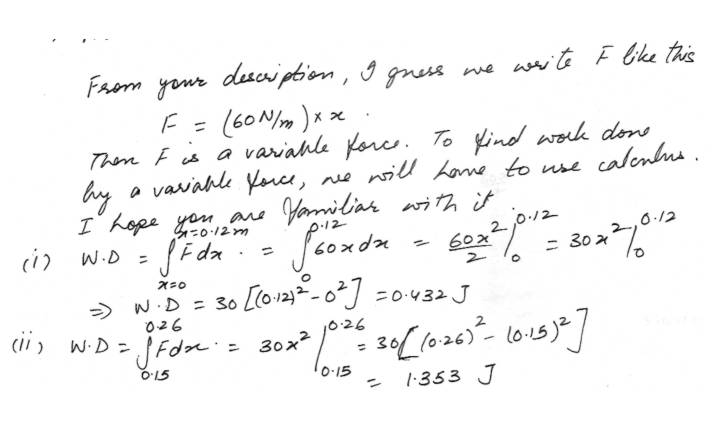 From your description, I guess we write F like this
F = (60 N/m) × x .
Then F is a variable force. To find work done
by a variable force, we will have to use calculus.
I hope you are familiar with it
(i) W.D = ∫_{x=0}^{x=0.12m} F dx . = ∫_0^{0.12} 60x dx = 60x²/2 |_0^{0.12} = 30x² |_0^{0.12}
⇒ W.D = 30 [(0.12)² - 0²] = 0.432 J
(ii) W.D = ∫_{0.15}^{0.26} F dx . = 30x² |_{0.15}^{0.26} = 30[(0.26)² - (0.15)²]
= 1.353 J